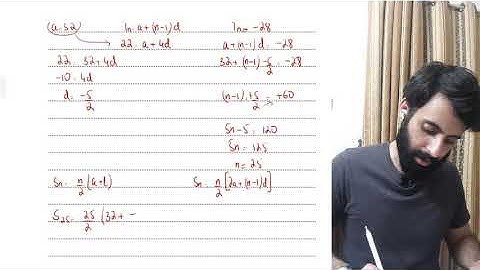 a=32
Tn=a+(n-1)d
Tn=-28
22=a+4d
a+(n-1)d=-28
22=32+4d
32+(n-1)-5/2=-28
-10=4d
d=-5/2
(n-1)+5/2=+60
5n-5=120
5n=125
n=25
Sn=n/2(a+l)
Sn=n/2[2a+(n-1)d]
S25=25/2(32+-